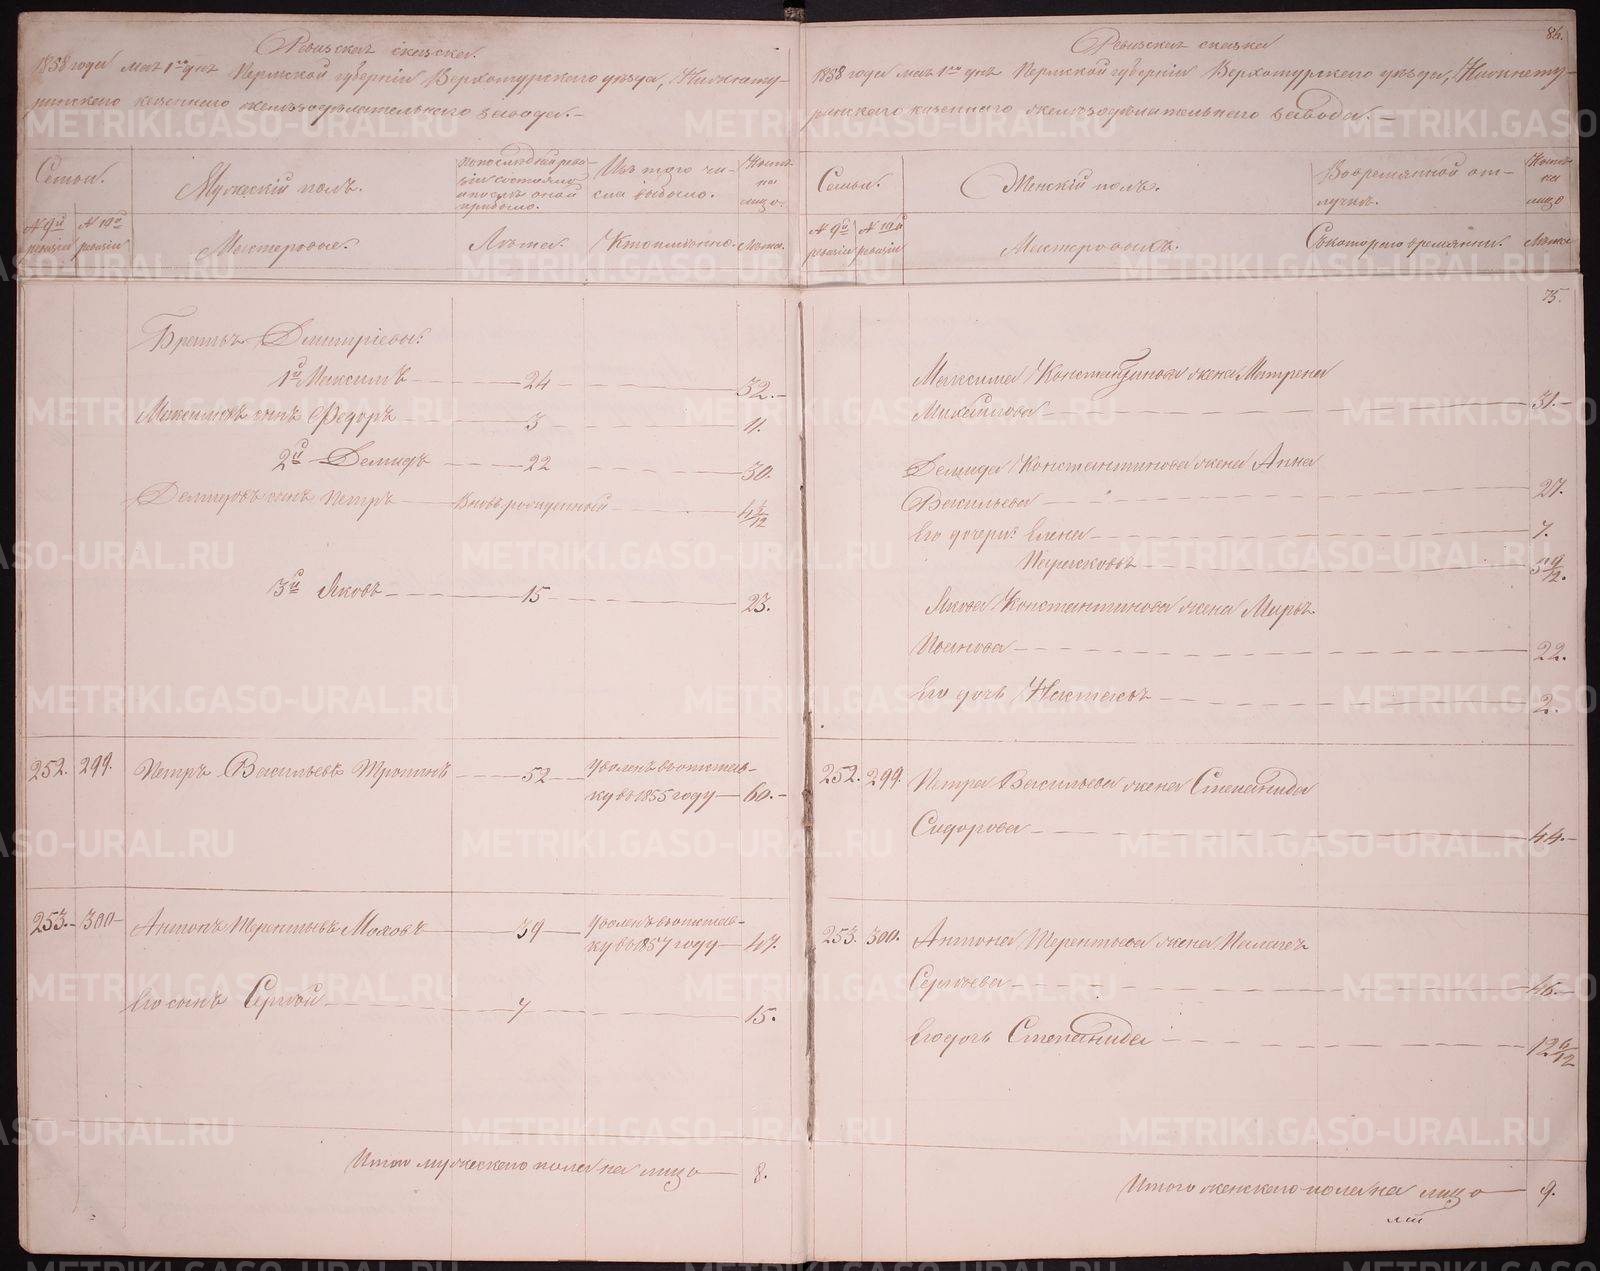 Ревизская сказка.
1858 года мая 1го дня Пермской губернiи Верхотурского уѣзда, Нижнету-
ринскаго казеннаго желѣзодѣлательнаго завода.-
Семьи.
Мужескiй полъ.
По последней реви-
зiи состояло
и послѣ оной
прибыло.
Изъ того чи-
сла выбыло.
Нынѣ
на
лицо.
№ 9й
ревизiи
№ 10й
ревизiи
Мастеровые.
Лѣта.
Когда именно.
Лѣта.
Братья Дмитрiевы:
1й Максимъ 24 32.-
Максимовъ сынъ Федоръ 3 11.
2й Демидъ 22 30.
Демидовъ сынъ Петръ Вновь рожденный
3й Яковъ 15 23.
252. 299. Петръ Васильевъ Тропинъ 52 Уволенъ въ отстав-
ку въ 1855 году 60.-
253.- 300- Антонъ Терентьевъ Моховъ 39 Уволенъ въ отстав-
ку въ 1857 году 47.
Его сынъ Сергѣй 7 15.
Итого мужескаго пола на лицо 8.
86.
Ревизская сказка
1858 года мая 1го дня Пермской губернiи Верхотурского уѣзда, Нижнету-
ринскаго казеннаго желѣзодѣлательнаго завода.-
Семьи.
Женскiй полъ.
Во временной от-
лучкѣ.
Нынѣ
на
лицо
№ 9й
ревизiи
№ 10й
ревизiи
Мастеровыхъ.
Съ котораго времяни.
Лѣта
75.
Максима Константинова жена Матрена
Михайлова 31.-
Демида Константинова жена Анна
Васильева 27.
Его дочери: Елена 7.
Парасковья
Якова Константинова жена Марья
Иванова 22.
Его дочь Настасья 2.
252. 299. Петра Васильева жена Степанида
Сидорова 44.-
253. 300. Антона Терентьева жена Палагея
Сергѣева 46.-
Его дочь Степанида 12 6/12
Итого женскаго пола на лицо 9.
METRIKI.GASO-URAL.RU